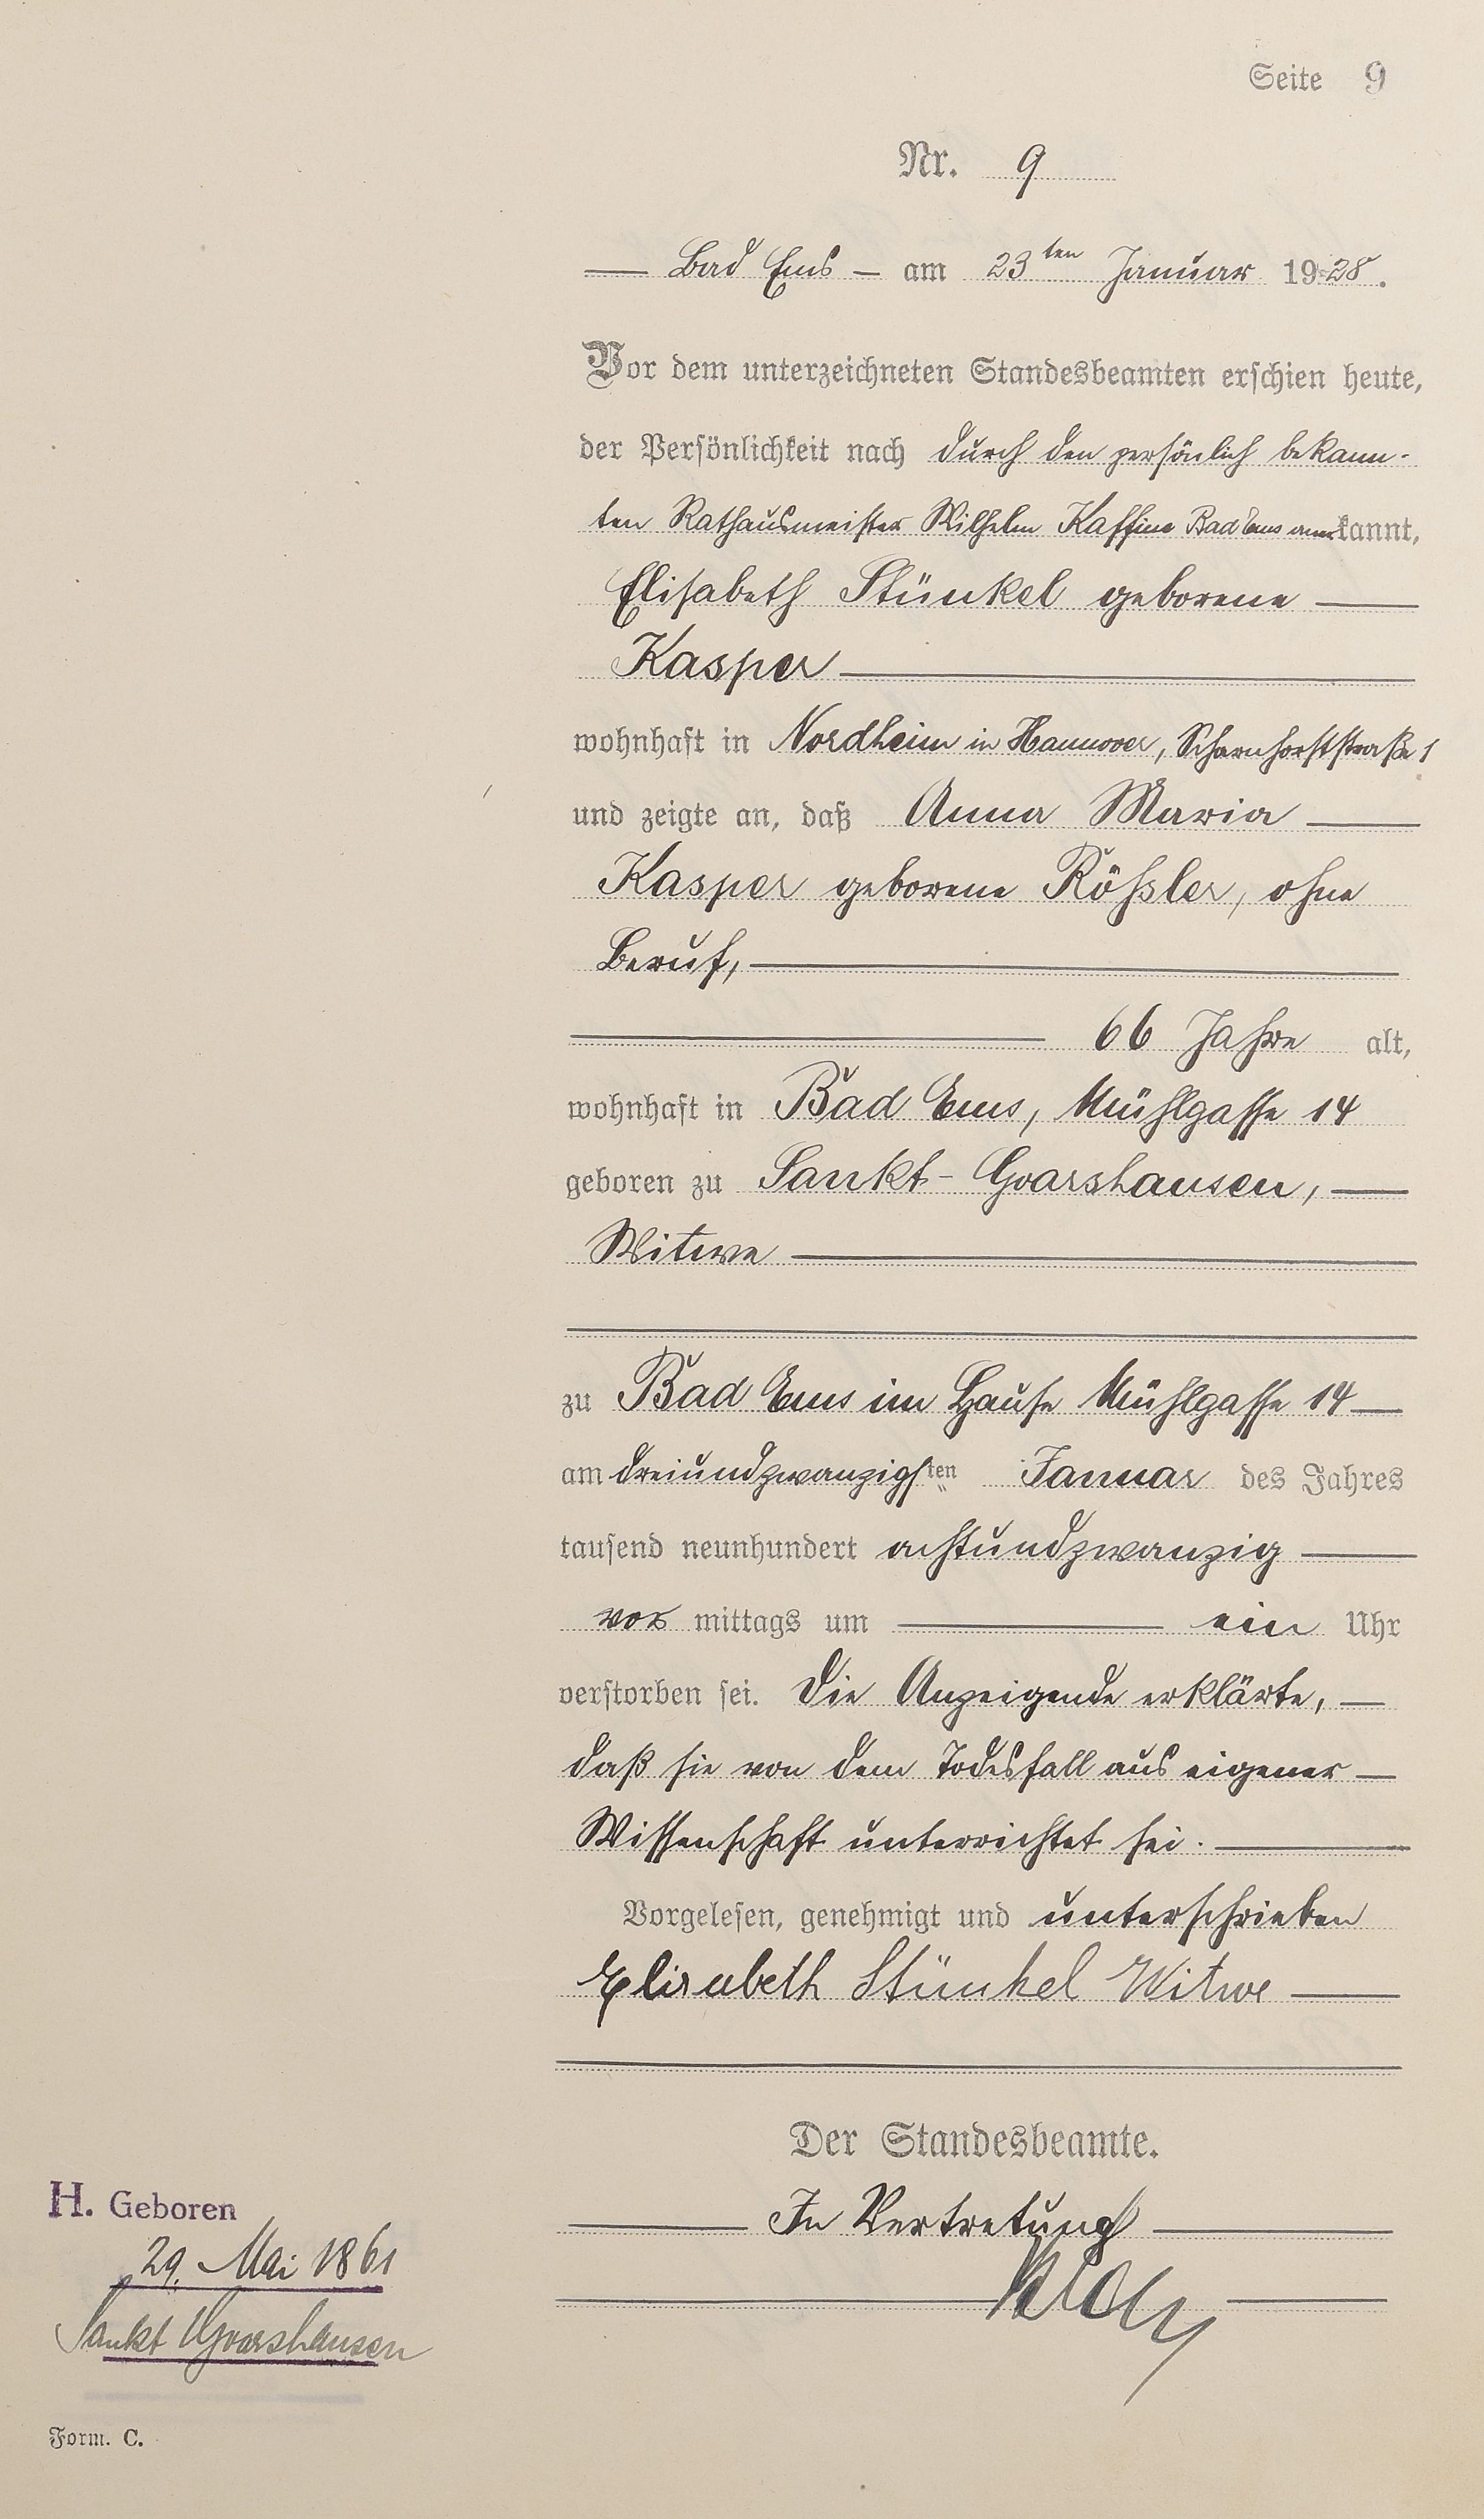 Seite 9
Nr. 9
Bad Ems — am 23ten Januar 1928.
Vor dem unterzeichneten Standesbeamten erschien heute,
der Persönlichkeit nach durch den persönlich bekann-
ten Rathausmeister Wilhelm Kaffine Bad Ems anerkannt,
Elisabeth Stünkel geborene
Kasper
wohnhaft in Nordheim in Hannover, Scharnhorststraße 1
und zeigte an, daß Anna Maria
Kasper geborene Rößler, ohne
Beruf,
66 Jahre alt,
wohnhaft in Bad Ems, Mühlgasse 14
geboren zu Sankt-Goarshausen,
Witwe
zu Bad Ems im Hause Mühlgasse 14
am dreiundzwanzigsten Januar des Jahres
tausend neunhundert achtundzwanzig
vor mittags um ein Uhr
verstorben sei. Die Anzeigende erklärte,
daß sie von dem Todesfall aus eigener
Wissenschaft unterrichtet sei.
Vorgelesen, genehmigt und unterschrieben
Elisabeth Stünkel Witwe
Der Standesbeamte.
In Vertretung
H. Geboren
29. Mai 1861
Sankt Goarshausen
Form. C.